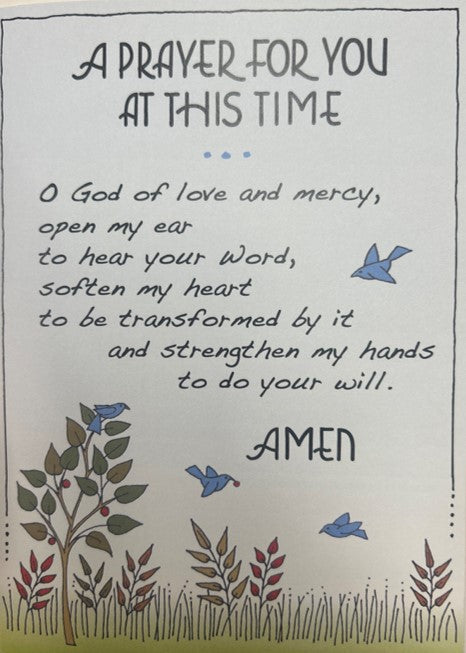 A PRAYER FOR YOU
AT THIS TIME
O God of love and mercy,
open my ear
to hear your Word,
soften my heart
to be transformed by it
and strengthen my hands
to do your will.
AMEN